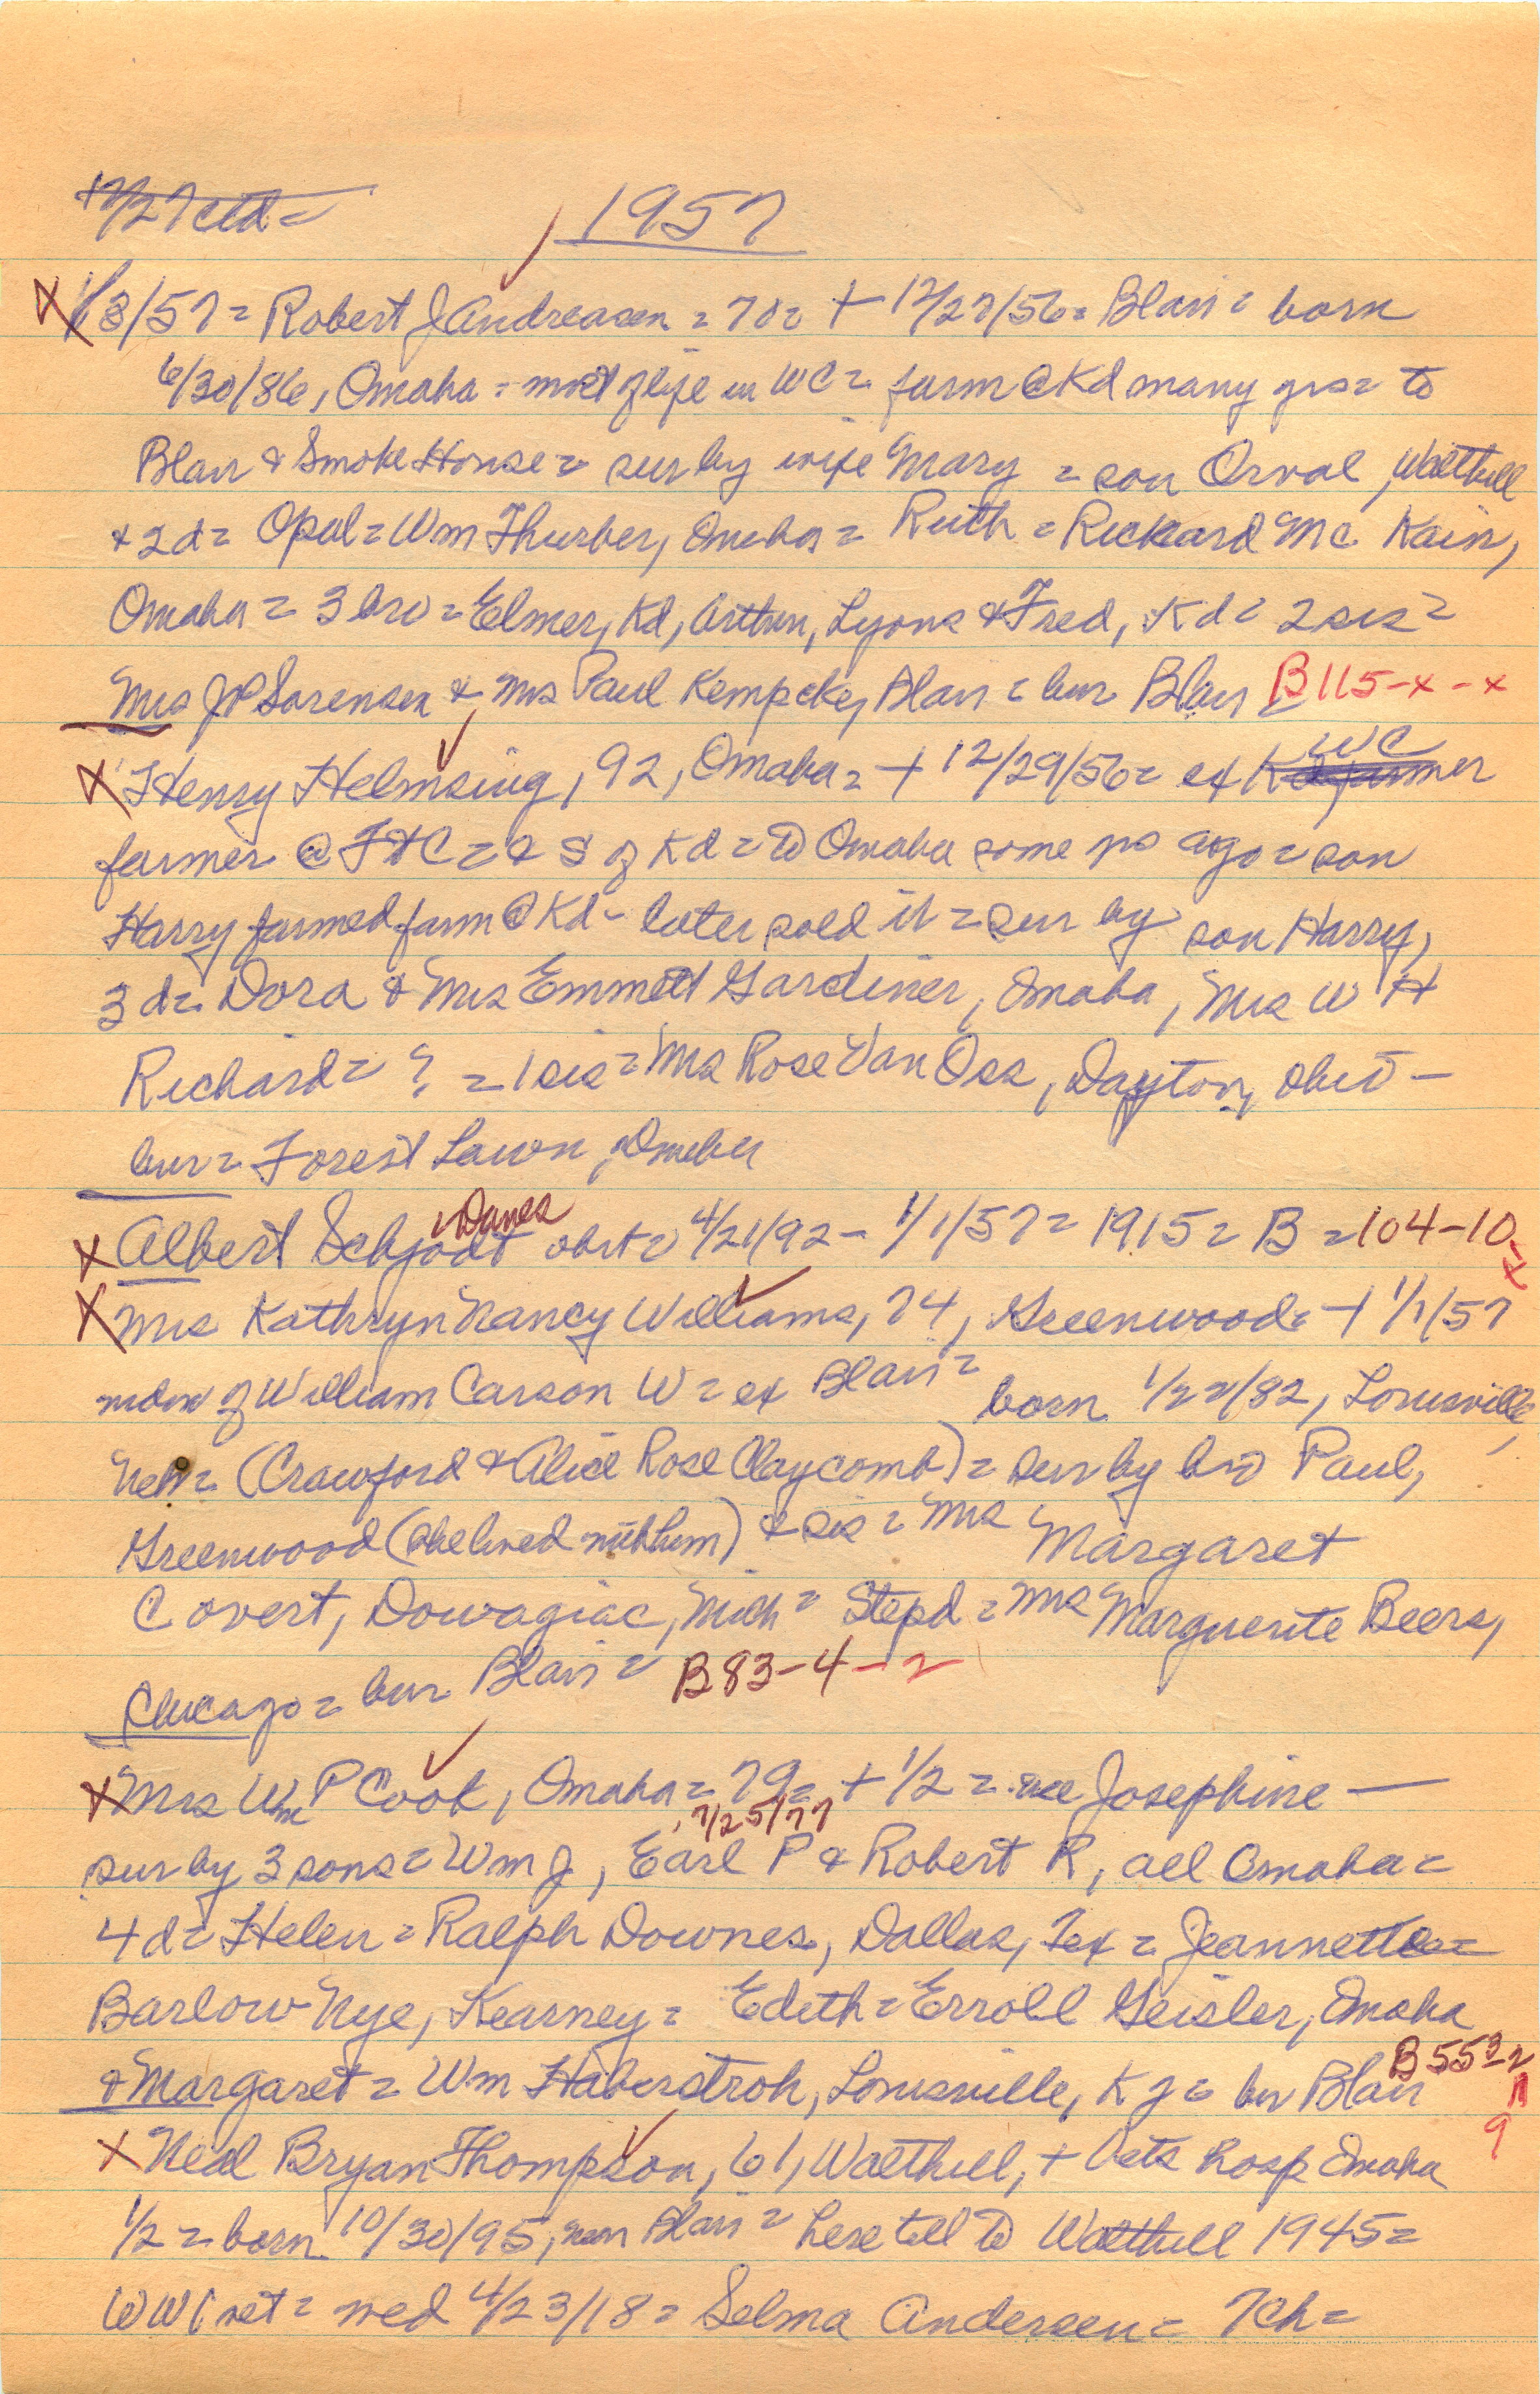 12/27 ctd =
1957
X 1/3/57 = Robert J Andreasen = 70 = + 12/27/56 = Blair = born
6/30/86, Omaha = most of life in WC = farm @ Kd many yrs = to
Blair & Smoke House = sur by wife Mary = son Orval, Walthill
& 2 d = Opal = Wm Thurber, Omaha = Ruth = Rickard Mc Kain,
Omaha = 3 bro = Elmer, Kd, Arthur, Lyons & Fred, Kd = 2 sis =
Mrs JP Sorensen & Mrs Paul Kempcke, Blair = bur Blair B 115-x-x
X Henry Helmsing, 92, Omaha = + 12/29/56 = ex Kd farmer WC
farmer @ Ft C = & S of Kd = to Omaha some yrs ago = son
Harry farmed farm @ Kd - later sold it = sur by son Harry,
3 d = Dora & Mrs Emmett Gardiner, Omaha, Mrs W H
Richard = ? = 1 sis = Mrs Rose Van Oss, Dayton, Ohio -
bur = Forest Lawn, Omaha
X Albert Schjodt = Danes obit = 4/21/92 - 1/1/57 = 1915 = B = 104-10-x
X Mrs Kathryn Nancy Williams, 74, Greenwood = + 1/1/57
widow of William Carson W = ex Blair = born 1/22/82, Louisville,
Neb = (Crawford & Alice Rose Claycomb) = sur by bro Paul,
Greenwood (she lived with him) & sis = Mrs Margaret
Covert, Dowagiac, Mich = Stepd = Mrs Marguerite Beers,
Chicago = bur Blair = B 83-4-2
X Mrs Wm P Cook, Omaha = 79 = + 1/2 = nee Josephine —
7/25/77
sur by 3 sons = Wm J, Earl P & Robert R, all Omaha =
4 d = Helen = Ralph Downes, Dallas, Tex = Jeannette =
Barlow Nye, Kearney = Edith = Erroll Geisler, Omaha
& Margaret = Wm Haberstroh, Louisville, Ky = bur Blair B 55
X Neal Bryan Thompson, 61, Walthill, + Vets Hosp Omaha
1/2 = born 10/30/95, near Blair = here till to Walthill 1945 =
WW1 vet = wed 4/23/18 = Selma Andersen = 7 ch =